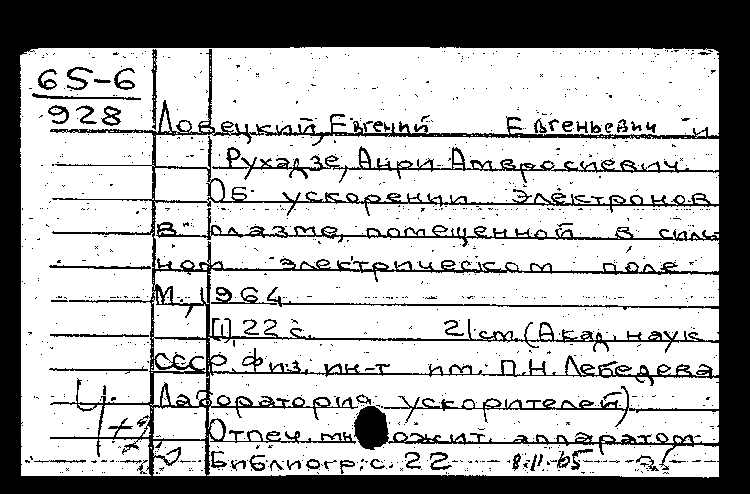 65-6
928
Ловецкий, Евгений Евгеньевич и
Рухадзе, Анри Амвросиевич.
Об ускорении электронов
в плазме, помещенной в силь
ном электрическом поле.
М., 1964.
[1], 22 с. 21 см. (Акад. наук
СССР. Физ. ин-т им. П.Н. Лебедева
Лаборатория ускорителей)
Отпеч. множит. аппаратом
Библиогр: с. 22 8.II.65